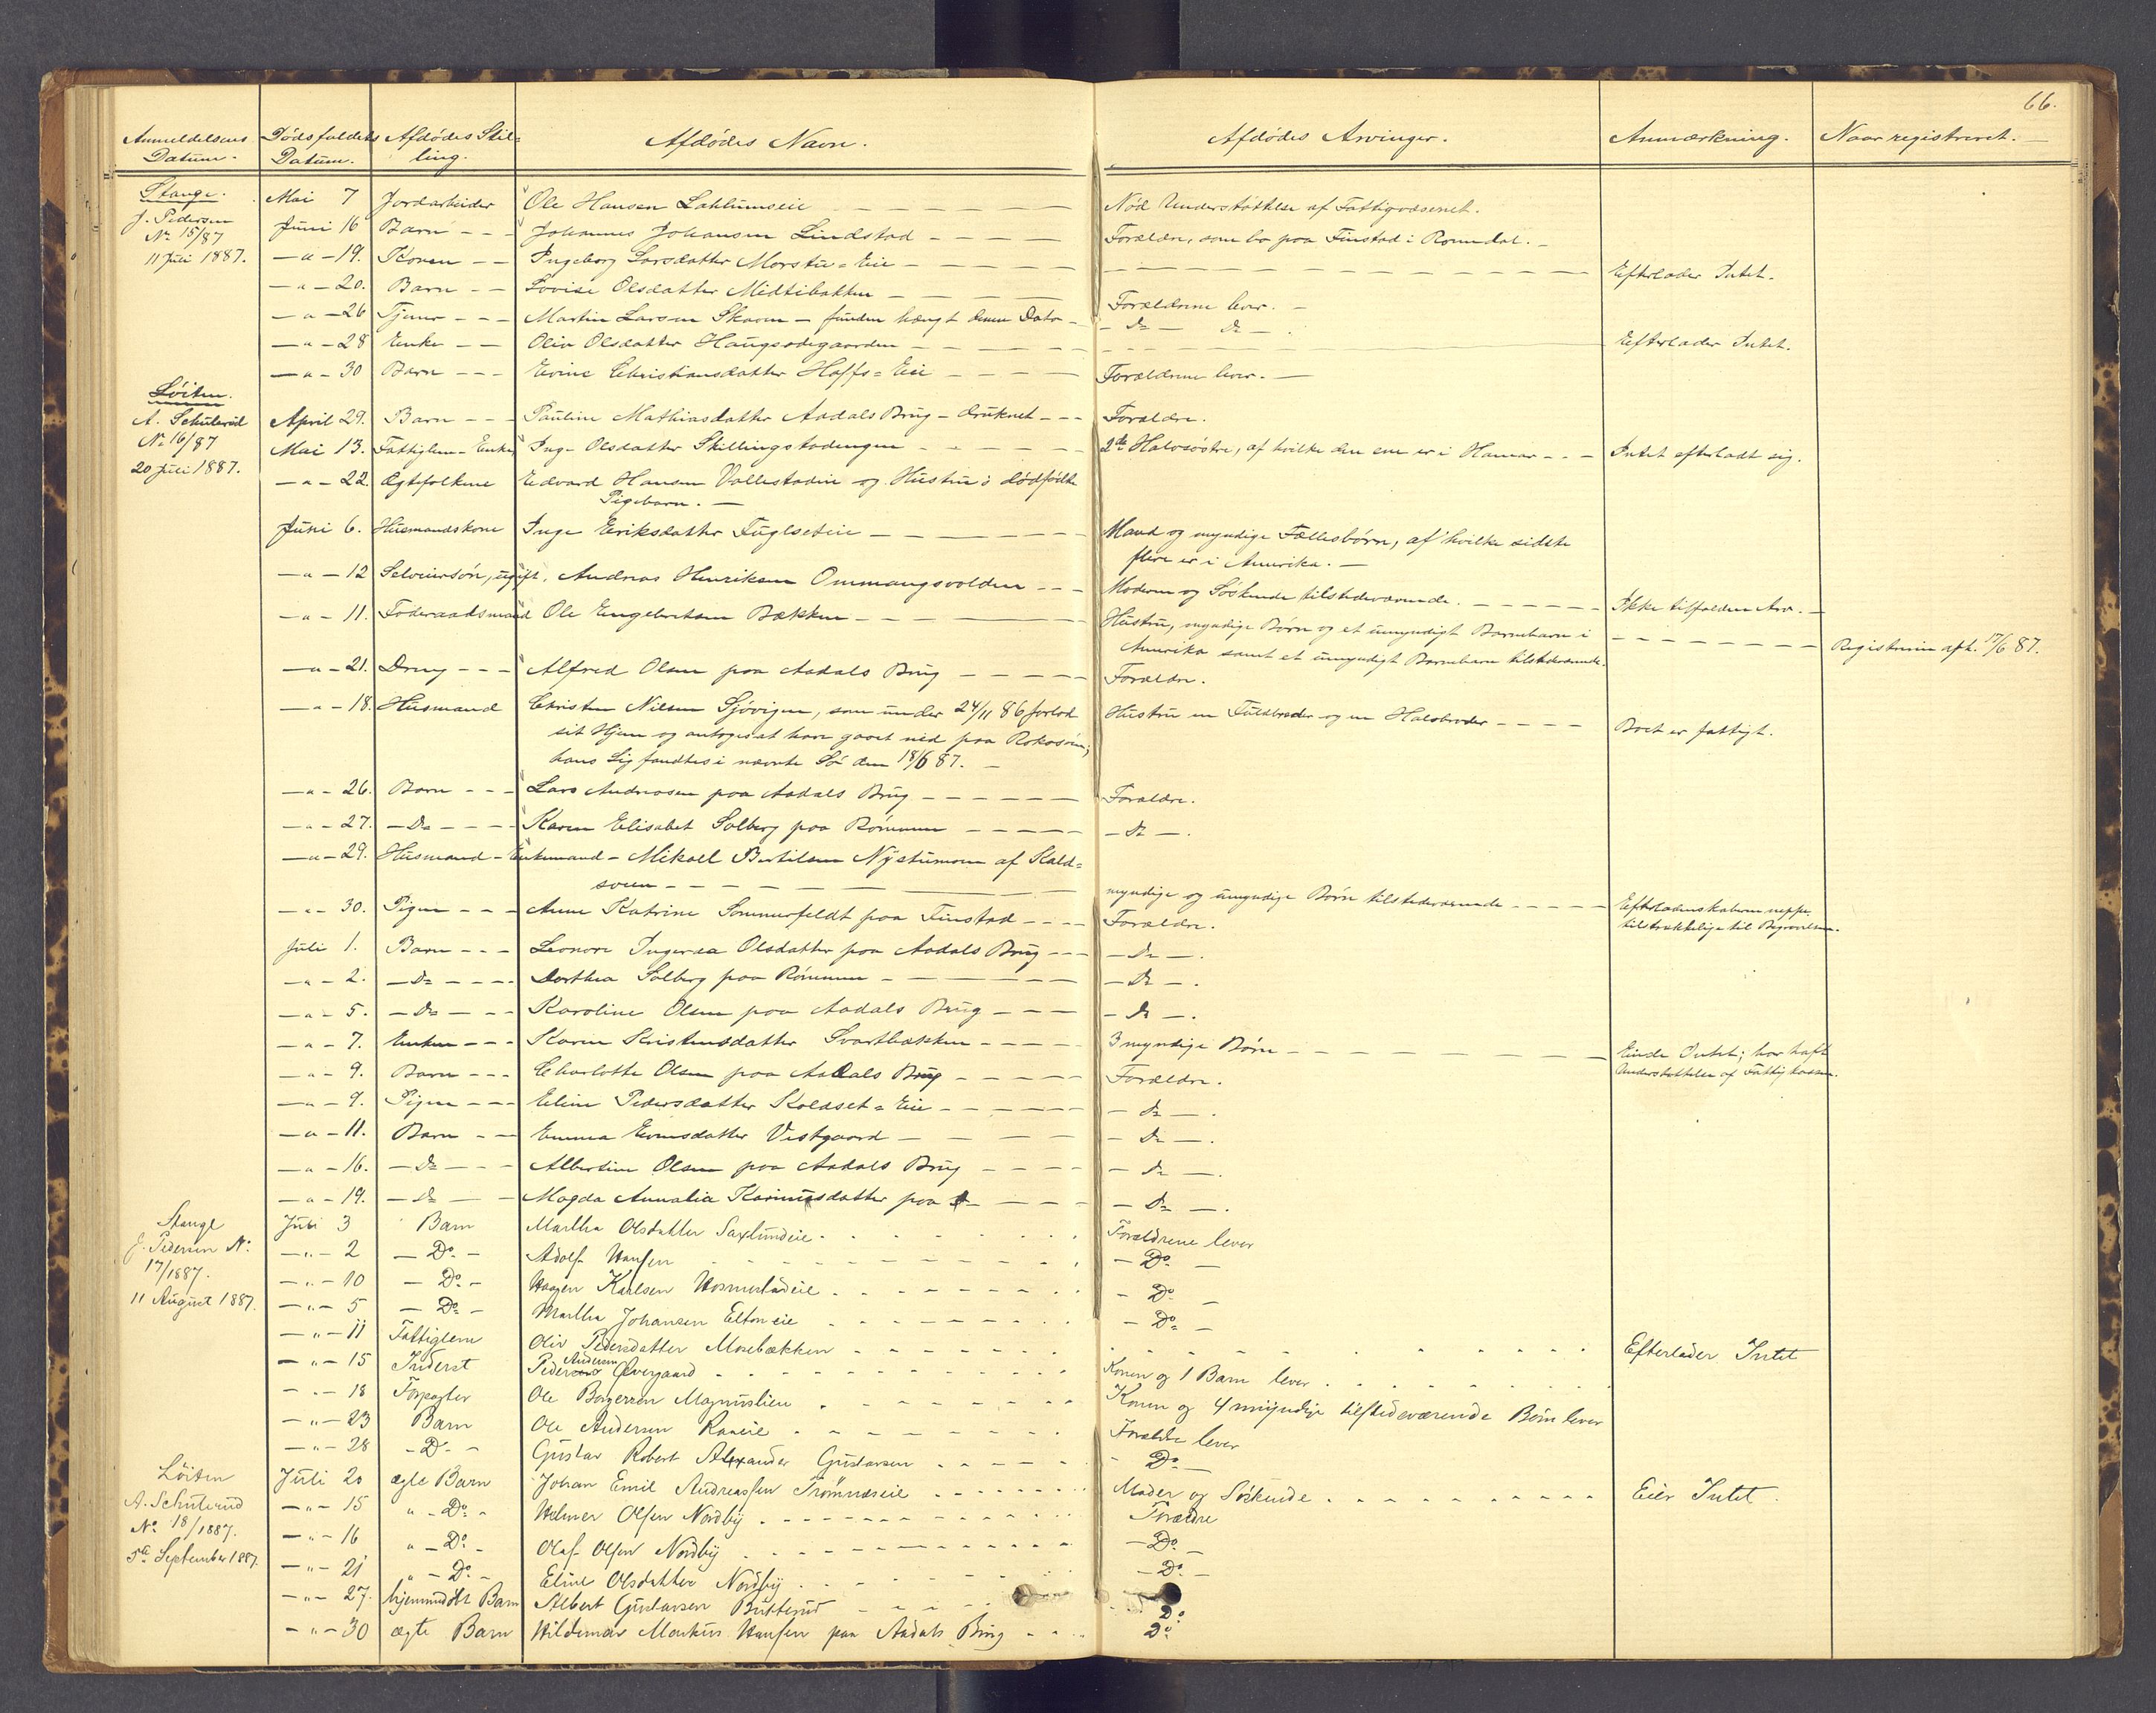 66.
Anmeldelsens Datum. Dødsfaldets Datum. Afdødes Stilling. Afdødes Navn. Afdødes Arvinger. Anmærkning. Naar registreret.
Stange. Mai 7 Jordarbeider Ole Hansen Lahlumseie Nød Understøttelse af Fattigvæsenet.
J. Pedersen Juni 16 Barn Johannes Johansen Lindstad Forældre, som bo paa Finstad i Romedal.
No 15/87 11 Juli 1887. -"- 19. Konen Ingeborg Larsdatter Morstu-Eie Efterlader Intet.
-"- 20. Barn Lovise Olsdatter Midtibakken Forældrene lever.
-"- 26 Tjener Martin Larsen Skaven - funden hængt denne Dato Do Do
-"- 28 Enke Oliv Olsdatter Haugsødegaarden Efterlader Intet.
-"- 30 Barn Evine Christiansdatter Hoffs-Eie Forældrene lever.
Löiten.
A. Schulerud April 29. Barn Pauline Mathiasdatter Aadals Brug - druknet Forældre.
No 16/87 Mai 13. Fattiglem-Enke Ing- Olsdatter Skillingstadengen 2de Halvsøstre, af hvilke den ene er i Hamar Intet efterladt sig.
20 Juli 1887. -"- 22. Ægtfolkene Edvard Hansen Vollestadeie og Hustrus dødfødte
Pigebarn.
Juni 6. Husmandskone Inge Eriksdatter Fuglseteie Mand og myndige Fællesbørn, af hvilke sidste
flere er i Amerika.
-"- 12 Selveiersøn, ugift, Andreas Henriksen Ommangsvolden Moderen og Søskende tilstedeværende. Ikke tilfalden Arv.
-"- 11. Føderaadsmand Ole Engebretsen Bækken Hustru, myndige Børn og et umyndigt Barnebarn i
Amerika samt et umyndigt Barnebarn tilstedeværende. Registrerin afh. 17/6 87.
-"- 21. Dreng Alfred Olsen paa Aadals Brug Forældre.
-"- 18. Husmand Christen Nilsen Sjøvigen, som under 24/11 86 forlod Hustru en Fuldbroder og en Halvbroder Boet er fattigt.
sit Hjem og antoges at have gaaet ned paa Rokosøen;
hans Lig fandtes i nævnte Sø den 18/6 87.
-"- 26. Barn Lars Andreasen paa Aadals Brug Forældre.
-"- 27. Do Karen Elisabet Solberg paa Rømmen Do
-"- 29. Husmand-Enkemand - Mikael Bertilsen Nystumoen af Kald-
sveen myndige og umyndige Børn tilstedeværende Efterladenskaberne neppe
tilstrækkelige til Begravelsen.
-"- 30. Pigen Anne Katrine Sommerfeldt paa Finstad Forældre.
Juli 1. Barn Leonore Ingevaa Olsdatter paa Aadals Brug Do
-"- 2. Do Dorthea Solberg paa Rømmen Do
-"- 5. Do Karoline Olsen paa Aadals Brug Do
-"- 7. Enken Karen Kristensdatter Svartbækken 3 myndige Børn Eiede Intet; har haft
Understøttelse af Fattigkassen.
-"- 9. Barn Charlotte Olsen paa Aadals Brug Forældre.
-"- 9. Pigen Eline Pedersdatter Koldset-Eie Do
-"- 11. Barn Emma Evensdatter Vestgaard Do
-"- 16. Do Albertine Olsen paa Aadals Brug Do
-"- 19. Do Magda Annalia Karinusdatter paa Do
Stange Juli 3 Barn Martha Olsdatter Saxlundeie Forældrene lever
J. Pedersen No -"- 2 Do Adolf Hansen Do
17/1887. -"- 10 Do Haagen Karlsen Do
11 August 1887. -"- 5 Do Martha Johansen Eltoneie Do
-"- 11 Fattiglem Oliv Pedersdatter Mosebækken Efterlader Intet
-"- 15 Inderst Peder Andersen Øvergaard Konen og 1 Barn lever
-"- 18 Forpagter Ole Borgersen Magnuslien Konen og 4 myndige tilstedeværende Børn lever
-"- 23 Barn Ole Andersen Raneie Forældre lever
-"- 28 Do Gustav Robert Alexander Gustavsen Do
Löiten Juli 20 ægte Barn Johan Emil Andreassen Trømnæseie Moder og Søskende Eier Intet.
A. Schulerud -"- 15 " Do Helmer Olsen Nordby Forældre
No 18/1887. -"- 16 " Do Olaf Olsen Nordby Do
5te September 1887. -"- 21 " Do Eline Olsdatter Nordby Do
-"- 27. hjemmedøbt Barn Albert Gustavsen Butterud Do
-"- 30 ægte Barn Hildemar Markus Hansen paa Aadals Brug Do